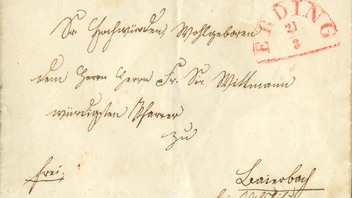 Sr Hochwürden, Wohlgeboren
ERDING
21
3
dem Herrn Herrn Fr. Wittmann
würdigsten Pfarrer
zu
frei.
Baierbach
bei